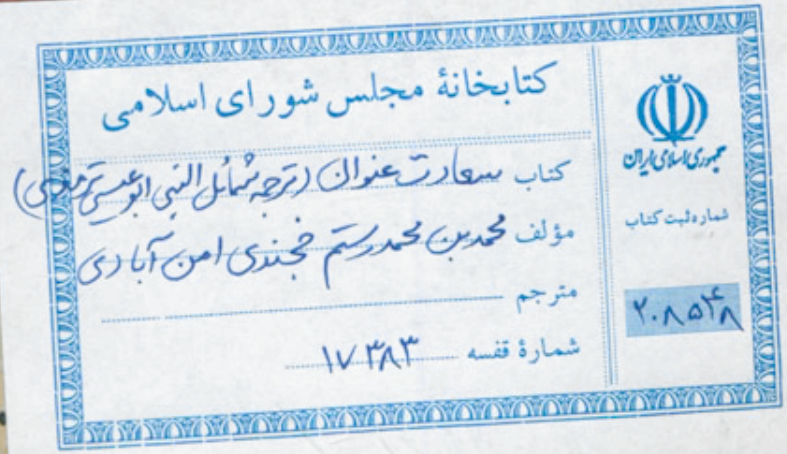 کتابخانهٔ مجلس شورای اسلامی
کتاب سعادت عنوان (ترجمه شمائل النبی ابوعیسی ترمذی)
مؤلف محمد بن محمد رستم خجندی امن آبادی
مترجم
شمارهٔ قفسه ۱۷۳۸۳
جمهوری اسلامی ایران
شماره ثبت کتاب
۲۰۸۵۴۸